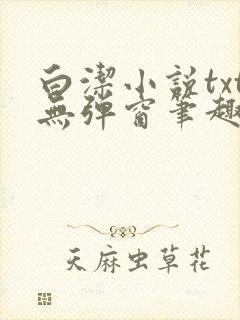 白潔小説txt
無彈窗筆趣
天麻虫草花